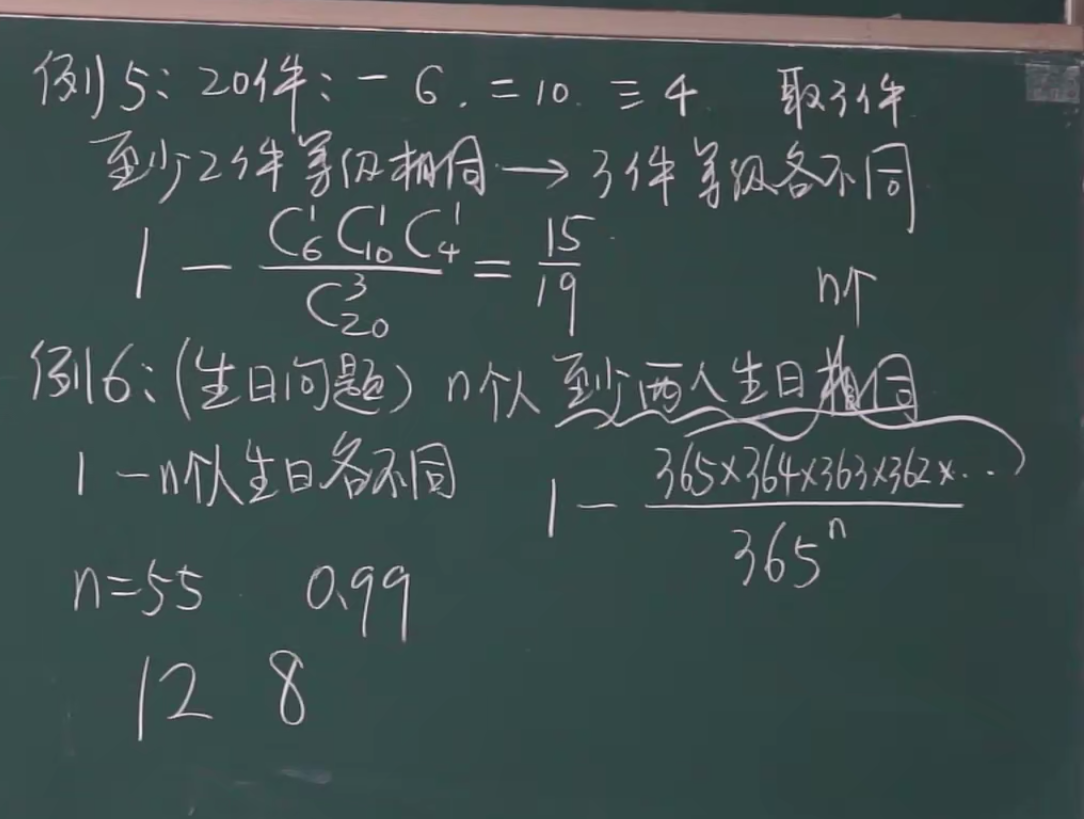 例5: 20件: 一 6. 二10. 三4 取3件
至少2件等级相同→3件等级各不同
1 - \frac{C_6^1 C_{10}^1 C_4^1}{C_{20}^3} = \frac{15}{19}
n个
例6: (生日问题) n个人 至少两人生日相同
1 - n个人生日各不同
1 - \frac{365×364×363×362×...}{365^n}
n=55 0.99
12 8